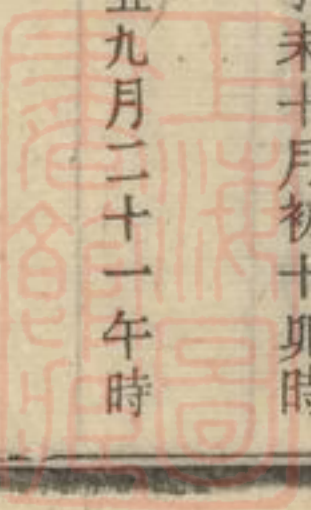 未十月初十卯時
丑九月二十一午時